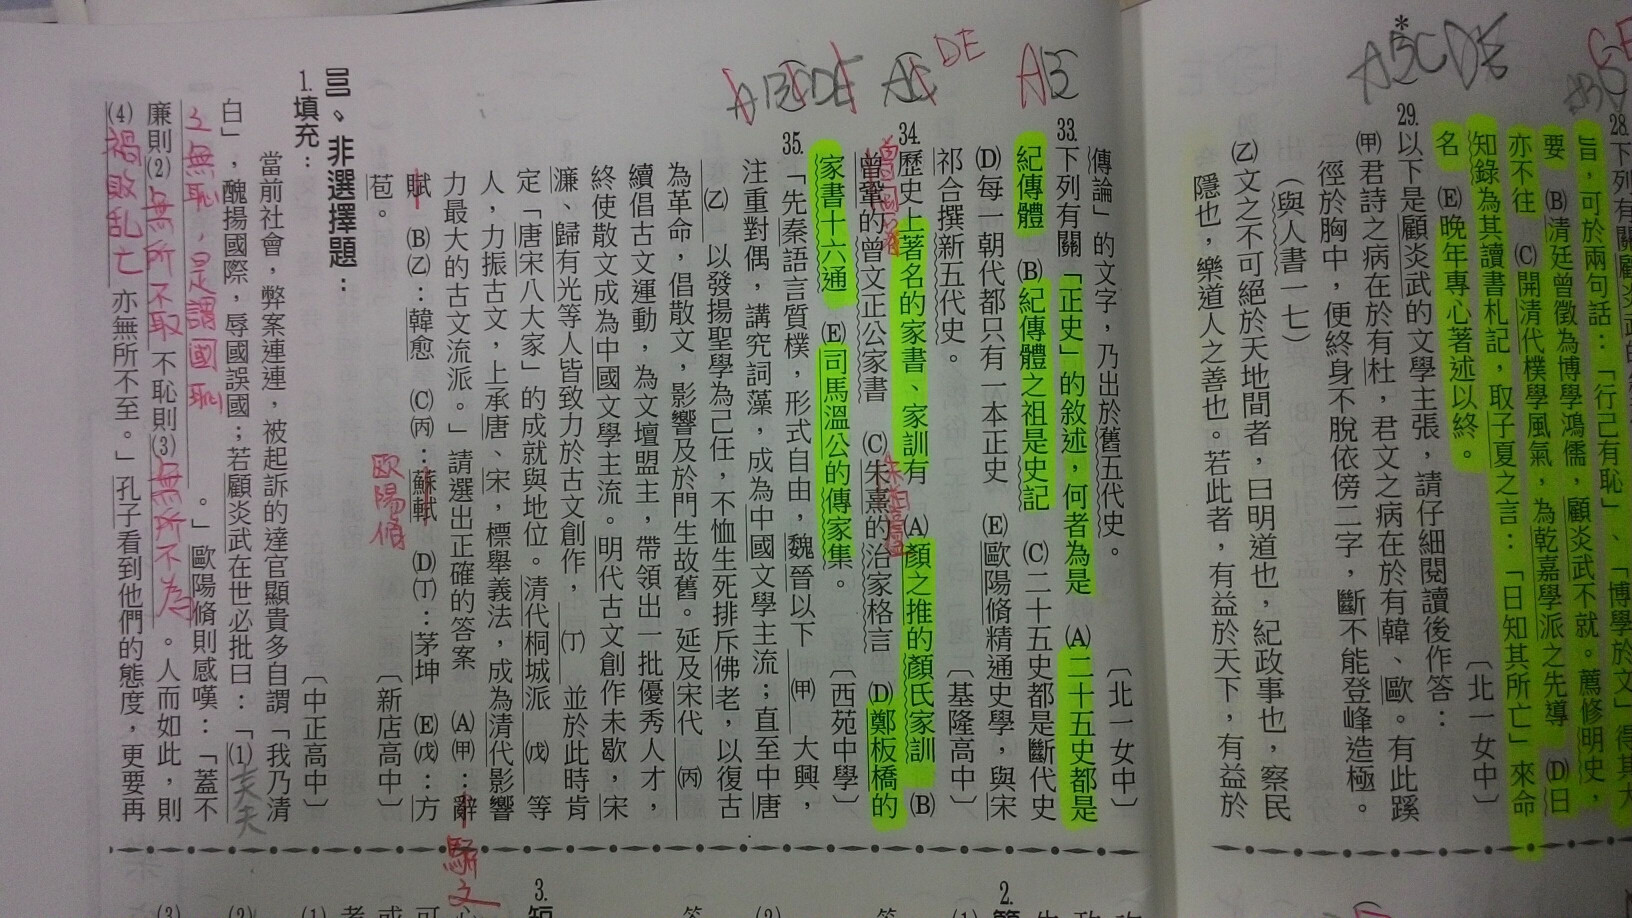 28.下列有關
旨，可於兩句話：「行己有恥」、「博學於文」得其大
要 (B)清廷曾徵為博學鴻儒，顧炎武不就。薦修明史，
亦不往 (C)開清代樸學風氣，為乾嘉學派之先導 (D)日
知錄為其讀書札記，取子夏之言：「日知其所亡」來命
名 (E)晚年專心著述以終。
〔北一女中〕
*
ABCDE
29.以下是顧炎武的文學主張，請仔細閱讀後作答：
(甲)君詩之病在於有杜，君文之病在於有韓、歐。有此蹊
徑於胸中，便終身不脫依傍二字，斷不能登峰造極。
（與人書一七）
(乙)文之不可絕於天地間者，曰明道也，紀政事也，察民
隱也，樂道人之善也。若此者，有益於天下，有益於
傳論」的文字，乃出於舊五代史。
〔北一女中〕
AB
33.下列有關「正史」的敘述，何者為是 (A)二十五史都是
紀傳體 (B)紀傳體之祖是史記 (C)二十五史都是斷代史
(D)每一朝代都只有一本正史 (E)歐陽脩精通史學，與宋
祁合撰新五代史。
〔基隆高中〕
DE
34.歷史上著名的家書、家訓有 (A)顏之推的顏氏家訓 (B)
曾鞏的曾文正公家書 (C)朱熹的治家格言 (D)鄭板橋的
曾國藩
家書十六通 (E)司馬溫公的傳家集。
〔西苑中學〕
ABCDE
35.「先秦語言質樸，形式自由，魏晉以下 (甲) 大興，
注重對偶，講究詞藻，成為中國文學主流；直至中唐
(乙) 以發揚聖學為己任，不恤生死排斥佛老，以復古
為革命，倡散文，影響及於門生故舊。延及宋代 (丙)
續倡古文運動，為文壇盟主，帶領出一批優秀人才，
終使散文成為中國文學主流。明代古文創作未歇，宋
濂、歸有光等人皆致力於古文創作， (丁) 並於此時肯
定「唐宋八大家」的成就與地位。清代桐城派 (戊) 等
人，力振古文，上承唐、宋，標舉義法，成為清代影響
力最大的古文流派。」請選出正確的答案 (A)甲：辭
駢文
賦 (B)乙：韓愈 (C)丙：蘇軾 (D)丁：茅坤 (E)戊：方
歐陽脩
苞。
〔新店高中〕
、非選擇題：
1.填充：
〔中正高中〕
當前社會，弊案連連，被起訴的達官顯貴多自謂「我乃清
白」，醜揚國際，辱國誤國；若顧炎武在世必批曰：「(1)士大夫
之無恥，是謂國恥 。」歐陽脩則感嘆：「蓋不
廉則(2)無所不取 不恥則(3)無所不為 。人而如此，則
(4)禍敗乱亡 亦無所不至。」孔子看到他們的態度，更要再
2.
3.